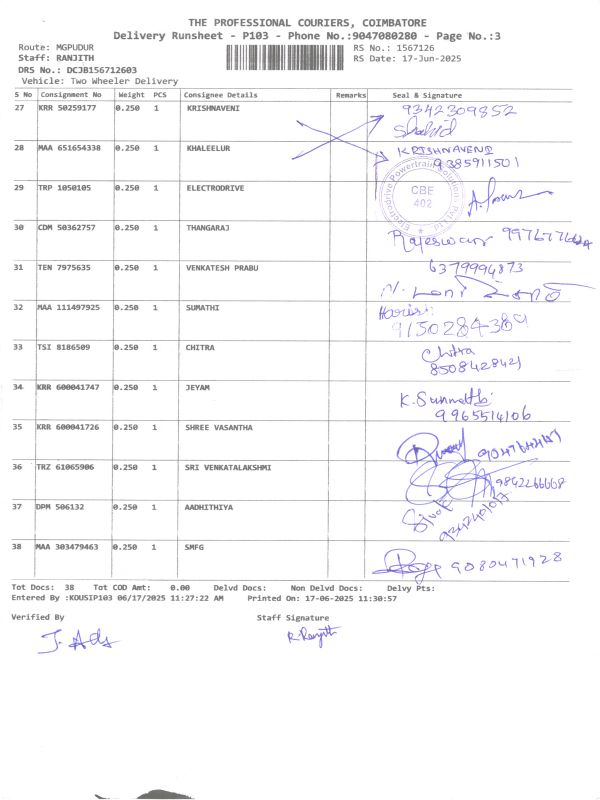 THE PROFESSIONAL COURIERS, COIMBATORE
Delivery Runsheet - P103 - Phone No.:9047080280 - Page No.:3
Route: MGPUDUR RS No.: 1567126
Staff: RANJITH RS Date: 17-Jun-2025
DRS No.: DCJB156712603
Vehicle: Two Wheeler Delivery
S No Consignment No Weight PCS Consignee Details Remarks Seal & Signature
27 KRR 50259177 0.250 1 KRISHNAVENI 9342309852
Shahid
28 MAA 651654338 0.250 1 KHALEELUR KRISHNAVENI
9385911501
29 TRP 1050105 0.250 1 ELECTRODRIVE Electrodrive Powertrain Solutions Pvt Ltd
CBE
402
30 CDM 50362757 0.250 1 THANGARAJ Rajeswari
31 TEN 7975635 0.250 1 VENKATESH PRABU 6379994873
32 MAA 111497925 0.250 1 SUMATHI Harish
9150284389
33 TSI 8186509 0.250 1 CHITRA Chitra
8508428421
34 KRR 600041747 0.250 1 JEYAM K. Sunmathi
9965514106
35 KRR 600041726 0.250 1 SHREE VASANTHA
36 TRZ 61065906 0.250 1 SRI VENKATALAKSHMI 9842266668
37 DPM 506132 0.250 1 AADHITHIYA
38 MAA 303479463 0.250 1 SMFG 9080471928
Tot Docs: 38 Tot COD Amt: 0.00 Delvd Docs: Non Delvd Docs: Delvy Pts:
Entered By :KOUSIP103 06/17/2025 11:27:22 AM Printed On: 17-06-2025 11:30:57
Verified By Staff Signature
R. Ranjith